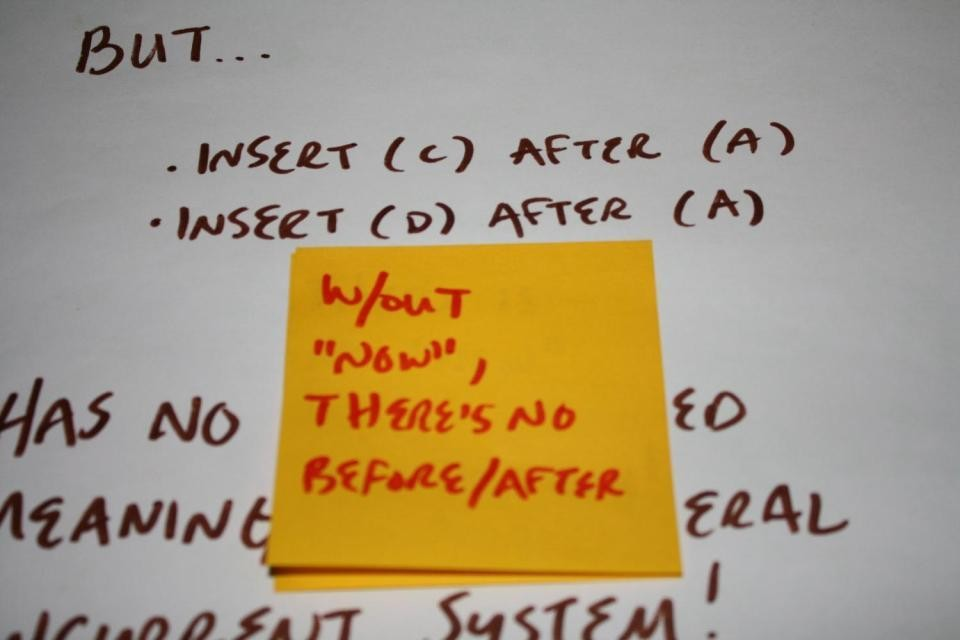 BUT...
. INSERT (C) AFTER (A)
. INSERT (D) AFTER (A)
W/OUT
"NOW",
THERE'S NO
BEFORE/AFTER
HAS NO
MEANING
SYSTEM!